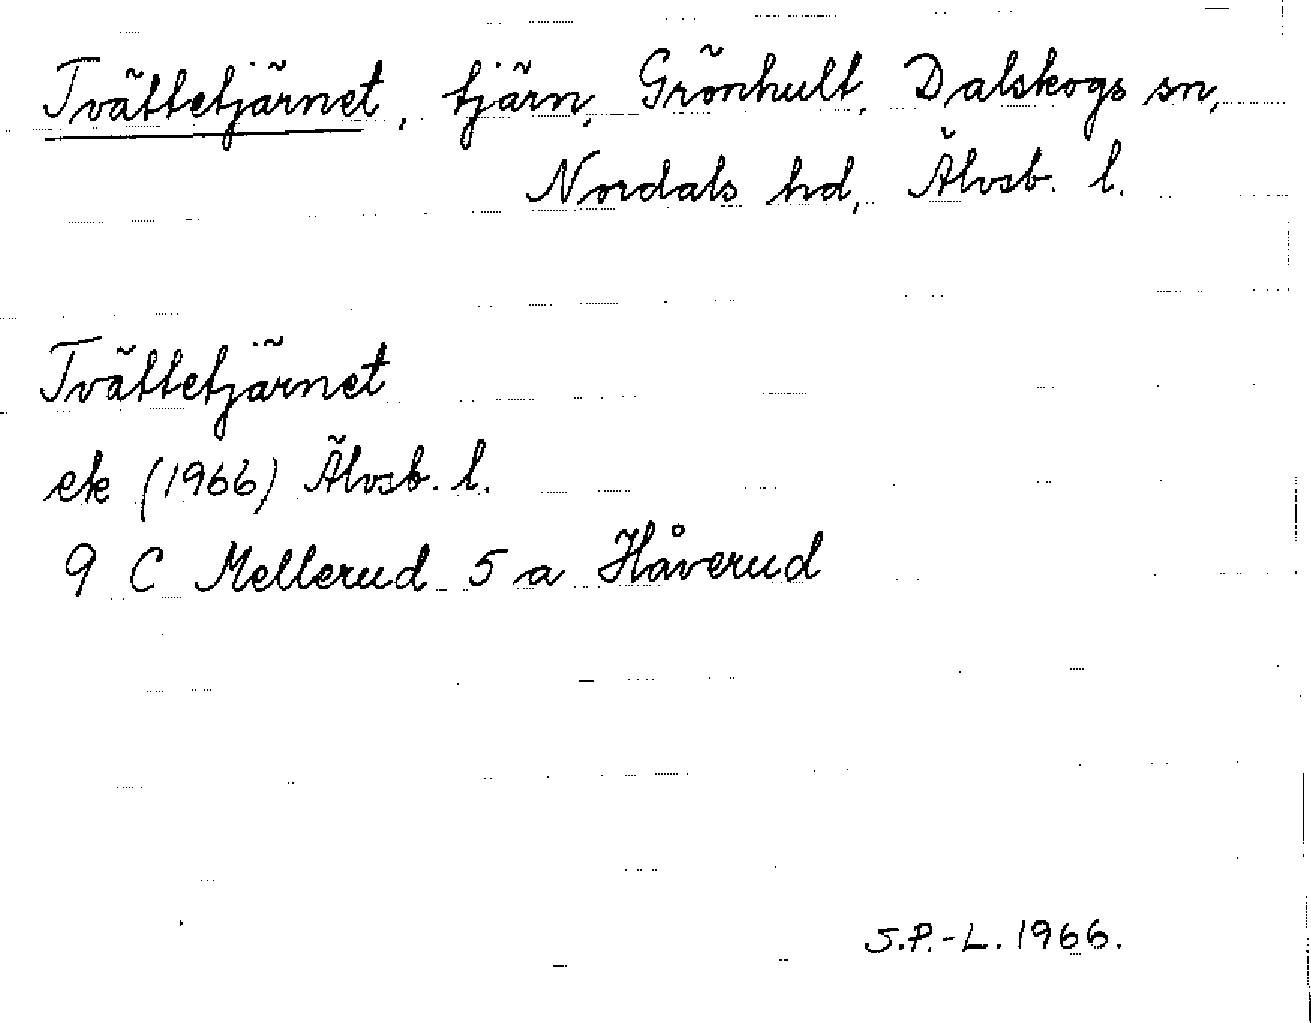 Tvättetjärnet, tjärn, Grönhult, Dalskogs sn,
Nordals hd, Älvsb. l.
Tvättetjärnet
ek (1966) Älvsb. l.
9 C Mellerud 5 a Håverud
S.P.-L. 1966.